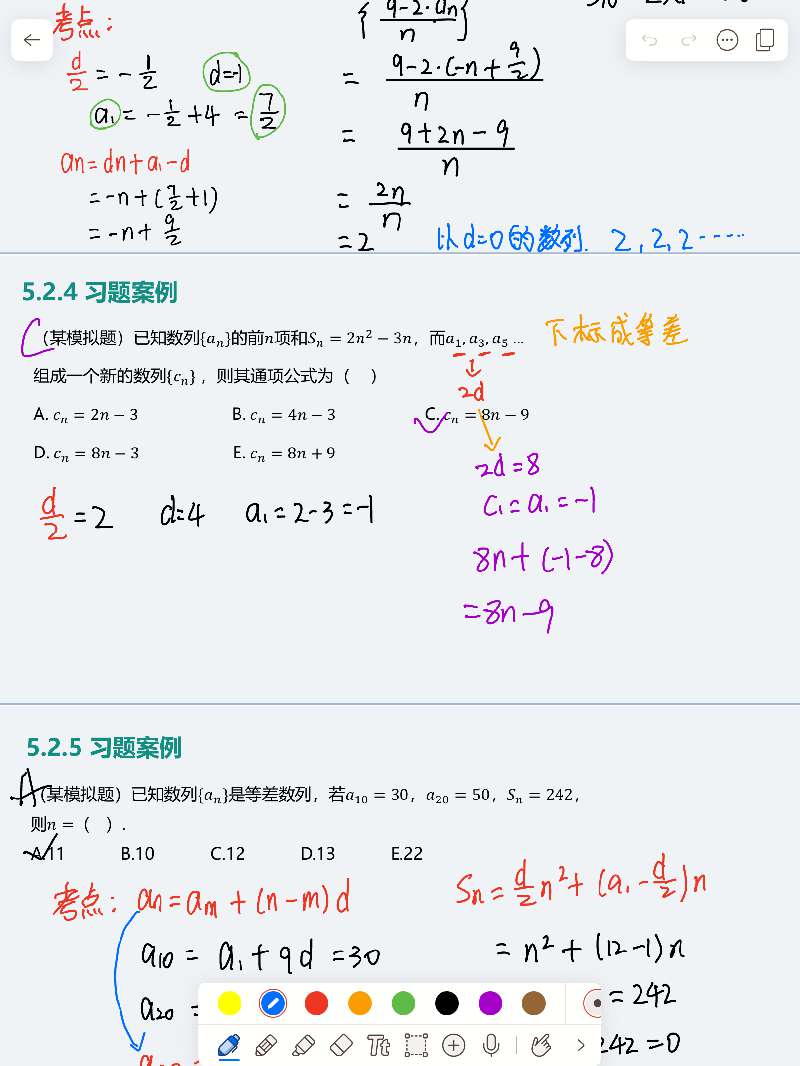 考点：
d/2 = -1/2 d=-1
a₁ = -1/2 + 4 = 7/2
an = dn + a₁ - d
= -n + (7/2 + 1)
= -n + 9/2
{ (9-2·an)/n }
= (9-2·(-n + 9/2))/n
= (9+2n-9)/n
= 2n/n
= 2 以d=0的数列. 2, 2, 2……
5.2.4 习题案例
C（某模拟题）已知数列{aₙ}的前n项和Sₙ = 2n² − 3n，而a₁, a₃, a₅ … 下标成等差
组成一个新的数列{cₙ}，则其通项公式为（ ）
2d
A. cₙ = 2n − 3 B. cₙ = 4n − 3 C. cₙ = 8n − 9
D. cₙ = 8n − 3 E. cₙ = 8n + 9
2d = 8
d/2 = 2 d=4 a₁ = 2-3 = -1
C₁ = a₁ = -1
8n + (-1-8)
= 8n - 9
5.2.5 习题案例
A（某模拟题）已知数列{aₙ}是等差数列，若a₁₀ = 30，a₂₀ = 50，Sₙ = 242，
则n =（ ）.
A.11 B.10 C.12 D.13 E.22
考点：an = am + (n-m)d
a₁₀ = a₁ + 9d = 30
a₂₀ =
Sn = d/2 n² + (a₁ - d/2)n
= n² + (12-1)n
= 242
242 = 0
Tt